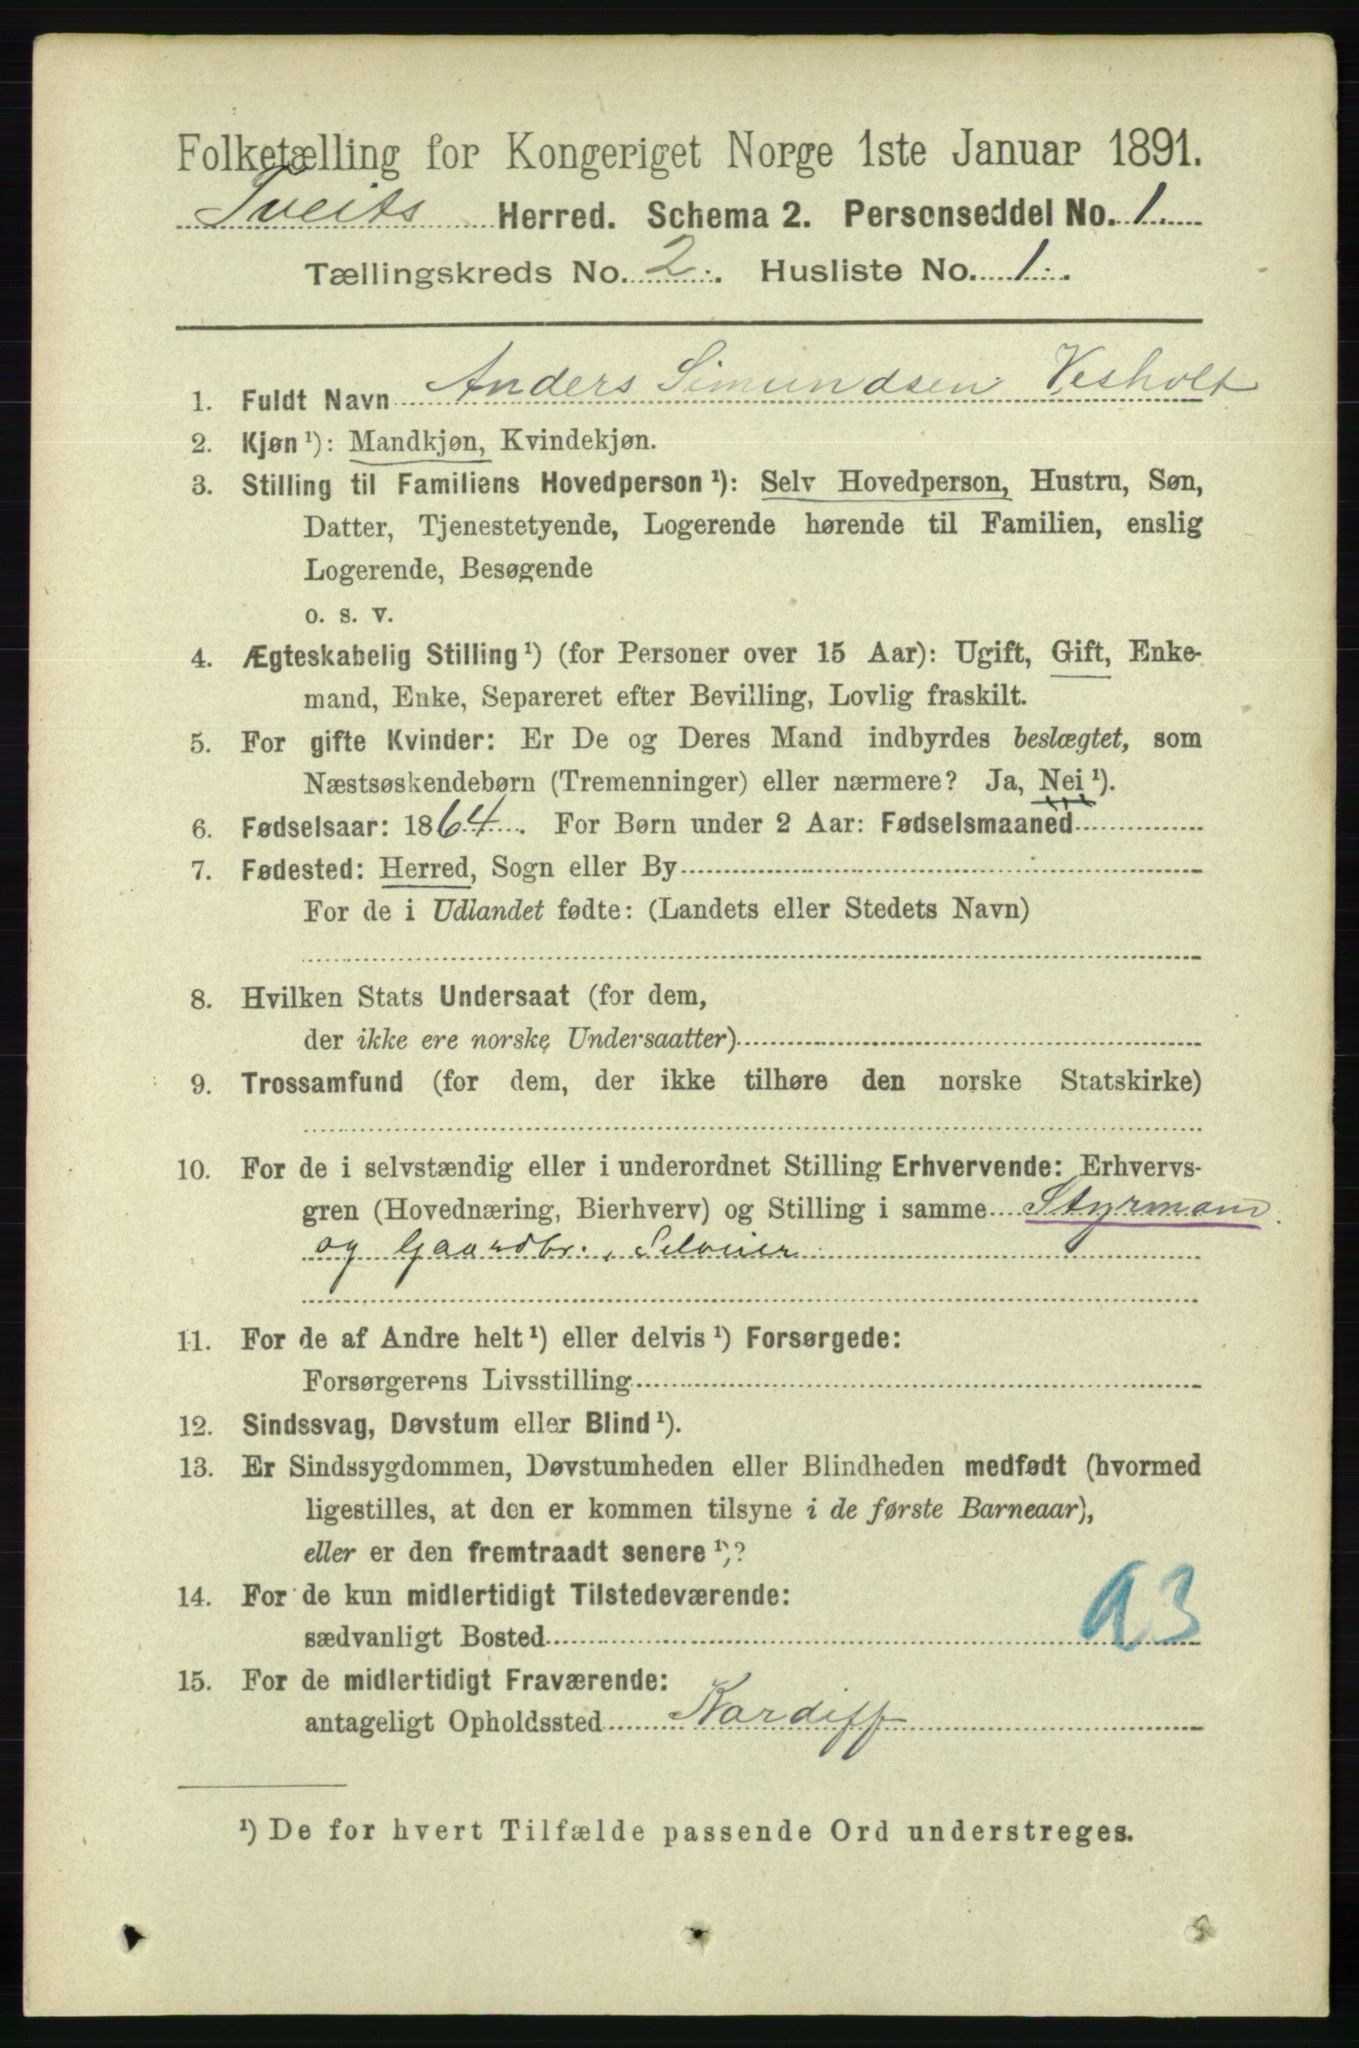 Folketælling for Kongeriget Norge 1ste Januar 1891.
Tveits Herred. Schema 2. Personseddel No. 1.
Tællingskreds No. 2. Husliste No. 1.
1. Fuldt Navn Anders Simundsen Vesholt
2. Kjøn ¹): Mandkjøn, Kvindekjøn.
3. Stilling til Familiens Hovedperson ¹): Selv Hovedperson, Hustru, Søn,
Datter, Tjenestetyende, Logerende hørende til Familien, enslig
Logerende, Besøgende
o. s. v.
4. Ægteskabelig Stilling ¹) (for Personer over 15 Aar): Ugift, Gift, Enke-
mand, Enke, Separeret efter Bevilling, Lovlig fraskilt.
5. For gifte Kvinder: Er De og Deres Mand indbyrdes beslægtet, som
Næstsøskendebørn (Tremenninger) eller nærmere? Ja, Nei ¹).
6. Fødselsaar: 1864. For Børn under 2 Aar: Fødselsmaaned
7. Fødested: Herred, Sogn eller By
For de i Udlandet fødte: (Landets eller Stedets Navn)
8. Hvilken Stats Undersaat (for dem,
der ikke ere norske Undersaatter)
9. Trossamfund (for dem, der ikke tilhøre den norske Statskirke)
10. For de i selvstændig eller i underordnet Stilling Erhvervende: Erhvervs-
gren (Hovednæring, Bierhverv) og Stilling i samme Styrmann
og Gaardbr., Selveier
11. For de af Andre helt ¹) eller delvis ¹) Forsørgede:
Forsørgerens Livsstilling
12. Sindssvag, Døvstum eller Blind ¹).
13. Er Sindssygdommen, Døvstumheden eller Blindheden medfødt (hvormed
ligestilles, at den er kommen tilsyne i de første Barneaar),
eller er den fremtraadt senere ¹)?
14. For de kun midlertidigt Tilstedeværende:
sædvanligt Bosted
15. For de midlertidigt Fraværende:
antageligt Opholdssted Kardiff
¹) De for hvert Tilfælde passende Ord understreges.